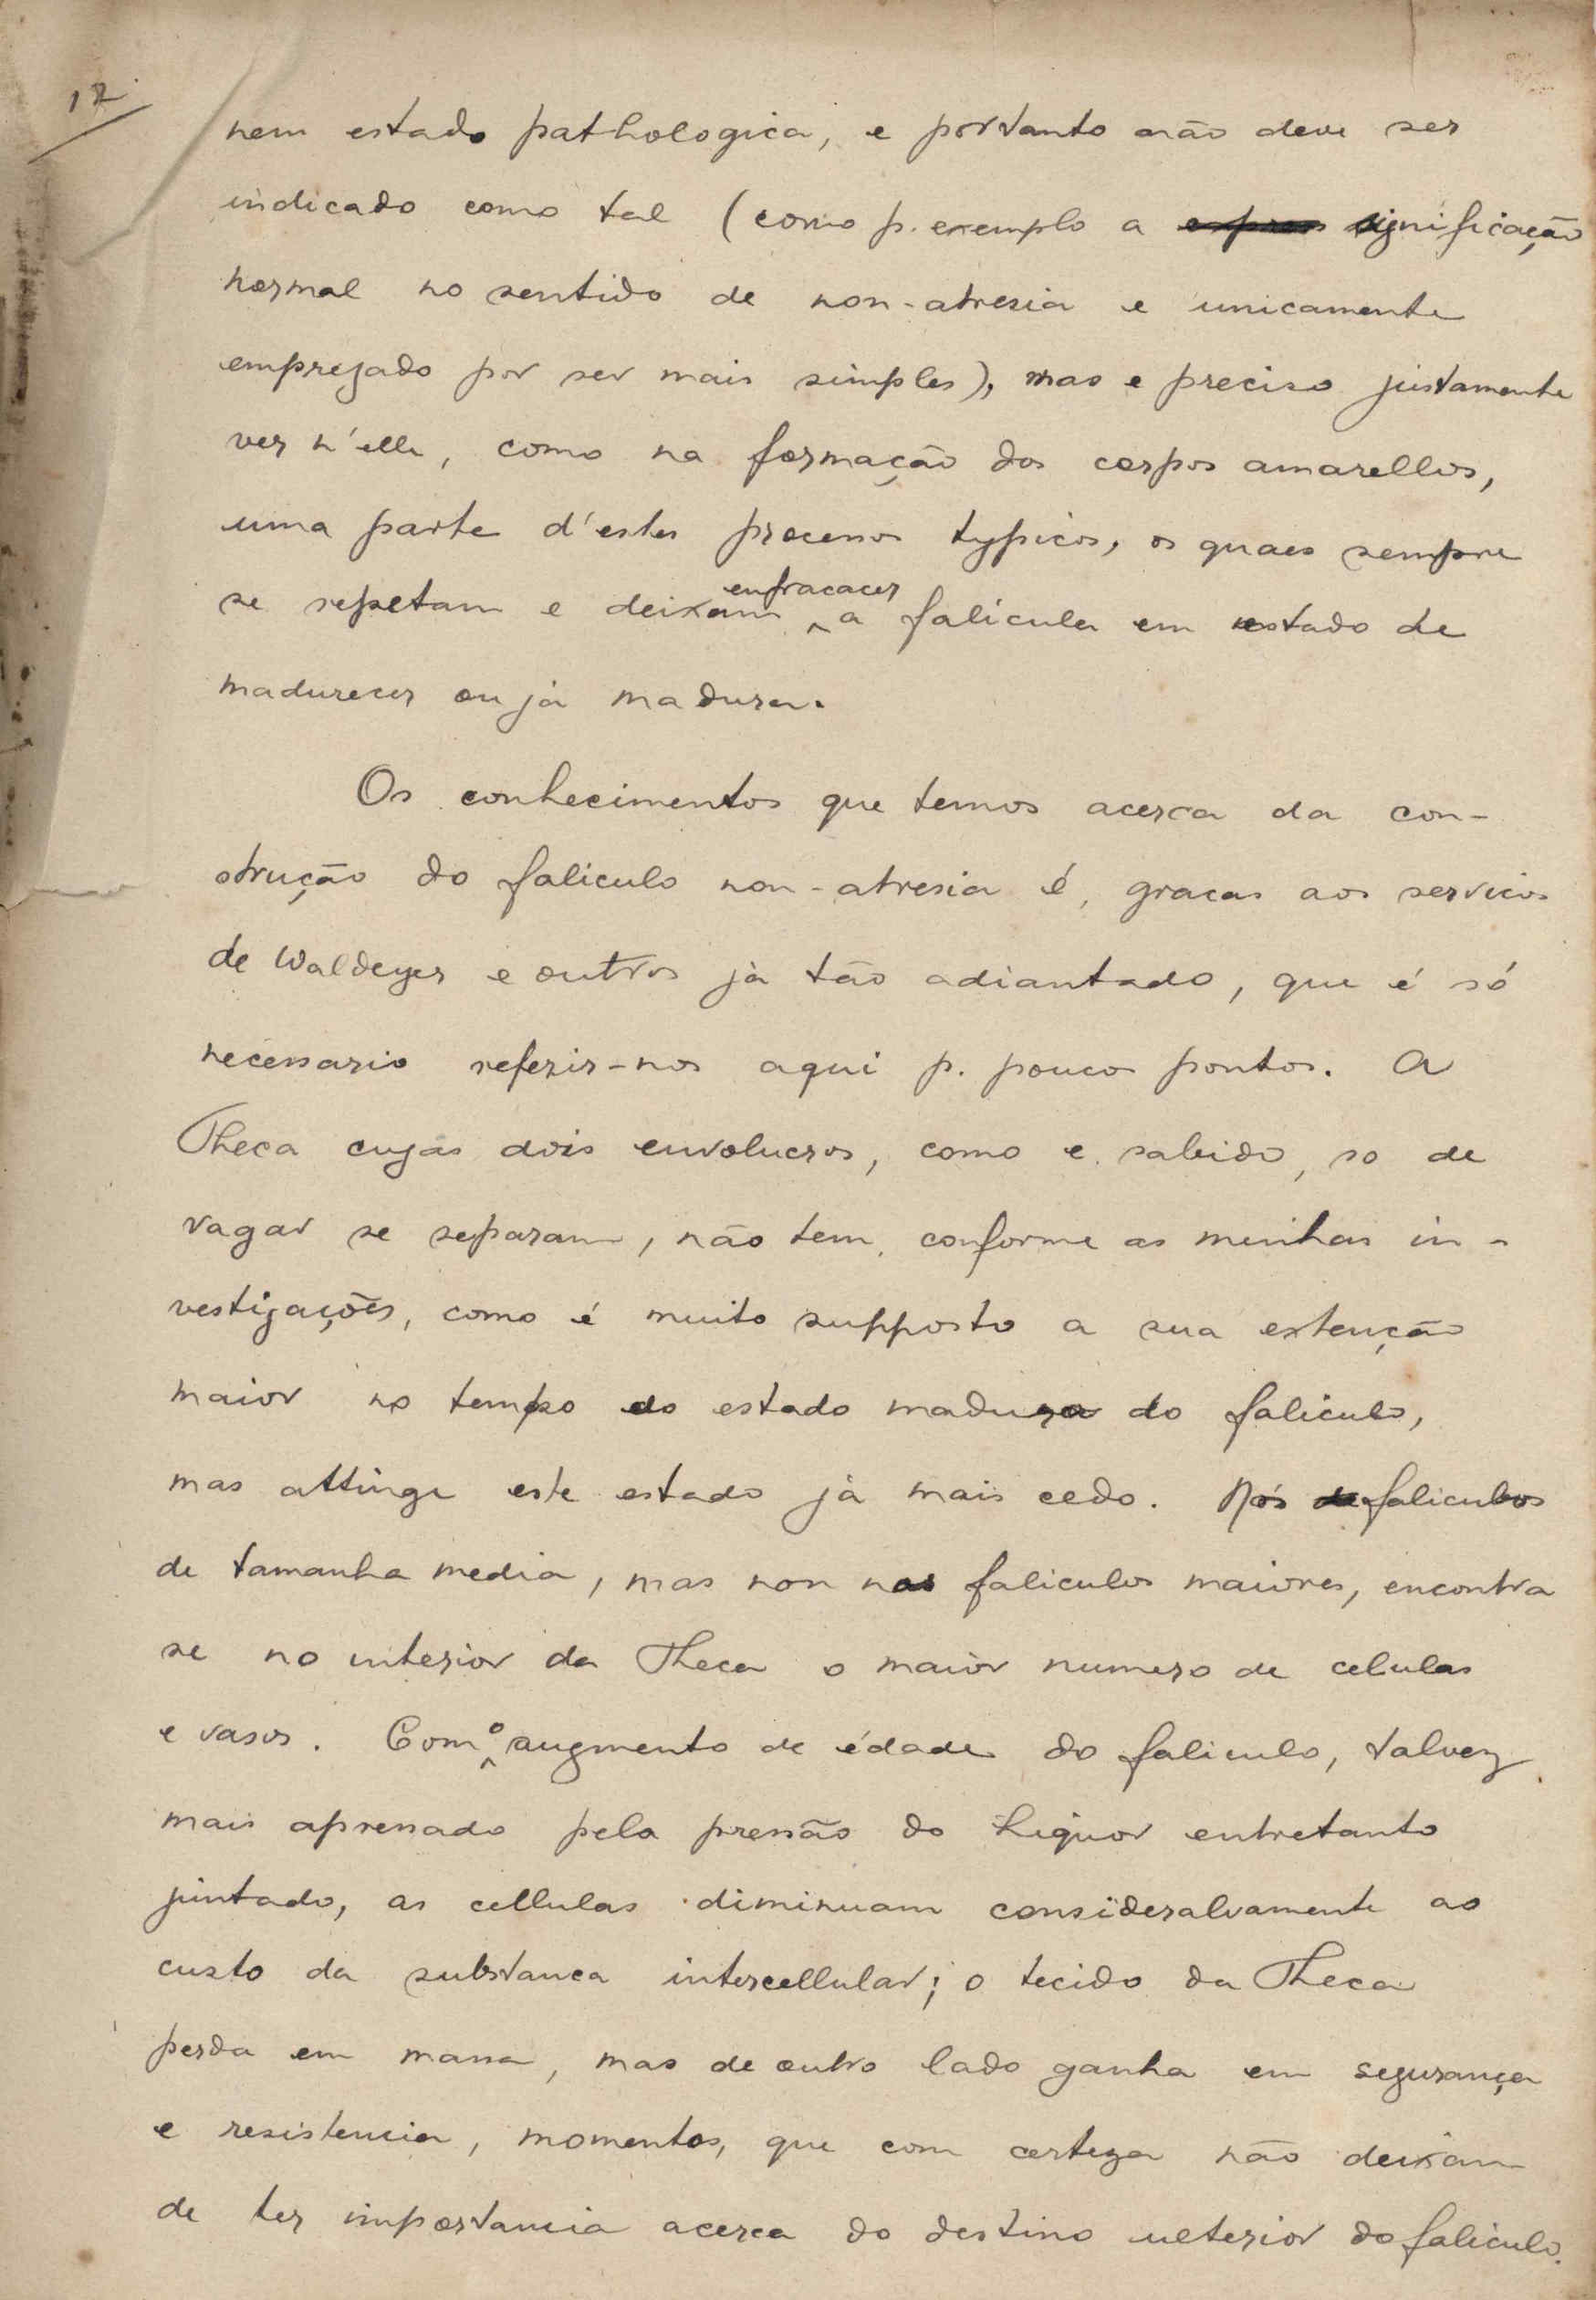 12
nem estado pathologica, e portanto não deve ser
indicado como tal (como p. exemplo a significação
normal no sentido de non-atresia e unicamente
empregado por ser mais simples), mas e preciso justamente
ver n'elle, como na formação dos corpos amarellos,
uma parte d'estes processos typicos, os quaes sempre
enfracacer
se repetam e deixam ^ a falicula em estado de
madurecer ou já madura.
Os conhecimentos que temos acerca da con-
strução do faliculo non-atresia é, gracas aos servicos
de Waldeyer e outros já tão adiantado, que é só
necessario referir-nos aqui p. pouco pontos. A
Theca cujas dois envolucros, como e sabido, so de
vagar se separam, não tem, conforme as minhas in-
vestigações, como é muito supposto a sua extenção
maior no tempo do estado madura do faliculo,
mas attinge este estado já mais cedo. Nós faliculos
de tamanha media, mas non nas faliculos maiores, encontra
se no interior da Theca o maior numero de celulas
e vasos. Com ^o augmento de édade do faliculo, talvez
mais apressado pela pressão do Liquor entretanto
juntado, as cellulas diminuam consideralvamente ao
custo da substanca intercellular; o tecido da Theca
perda em massa, mas de outro lado ganha em segurança
e resistencia, momentos, que com certeza não deixam
de ter importancia acerca do destino ulterior do faliculo.